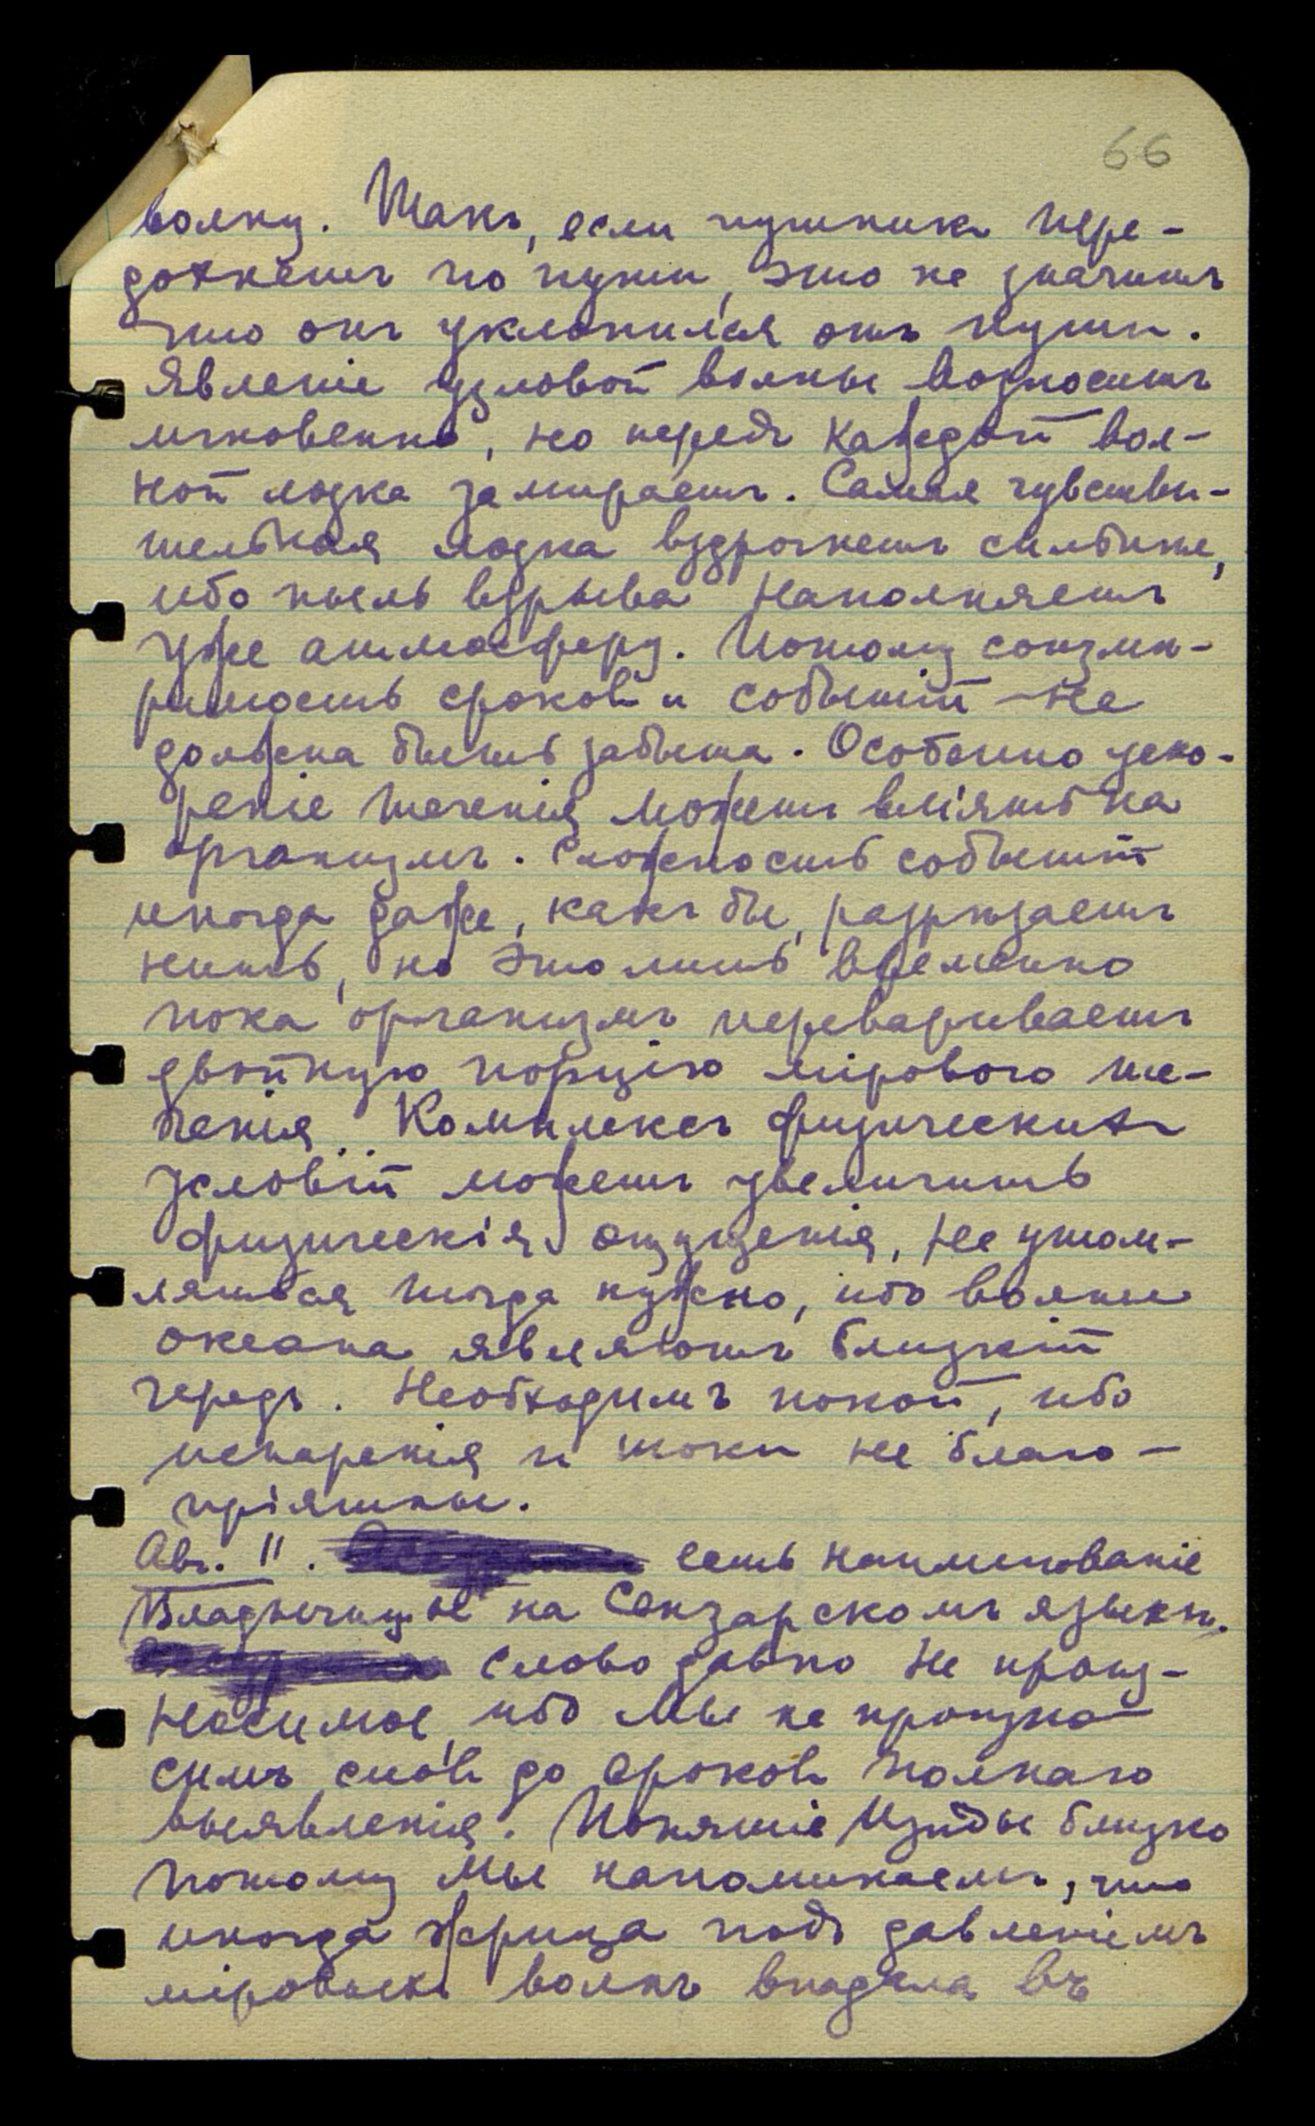 66
волну. Такъ, если путникъ пере-
дохнетъ по пути, это не значитъ
что онъ уклонился отъ пути.
Явленіе узловой волны возноситъ
мгновенно, но передъ каждой вол-
ной лодка замираетъ. Самая чувстви-
тельная лодка вздрогнетъ сильнѣе,
ибо пыль взрыва наполняетъ
уже атмосферу. Потому соизмѣ-
римость сроковъ и событій не
должна быть забыта. Особенно уско-
реніе теченія можетъ вліять на
организмъ. Сложность событій
иногда даже, какъ бы, разрѣзаетъ
нить, но это лишь временно
пока организмъ перевариваетъ
двойную порцію мірового те-
ченія. Комплексъ физическихъ
условій можетъ увеличить
физическія ощущенія, не утом-
ляться тогда нужно, ибо волны
океана являютъ близкій
чередъ. Необходимъ покой, ибо
испаренія и токи не благо-
пріятны.
Авг. 11. есть наименованіе
Владычицы на Сензарскомъ языкѣ.
слово давно не произ-
носимое, ибо Мы не произно-
симъ словъ до сроковъ полнаго
выявленія. Понятіе Изиды близко
потому Мы напоминаемъ, что
иногда жрица подъ давленіемъ
міровыхъ волнъ впадала въ